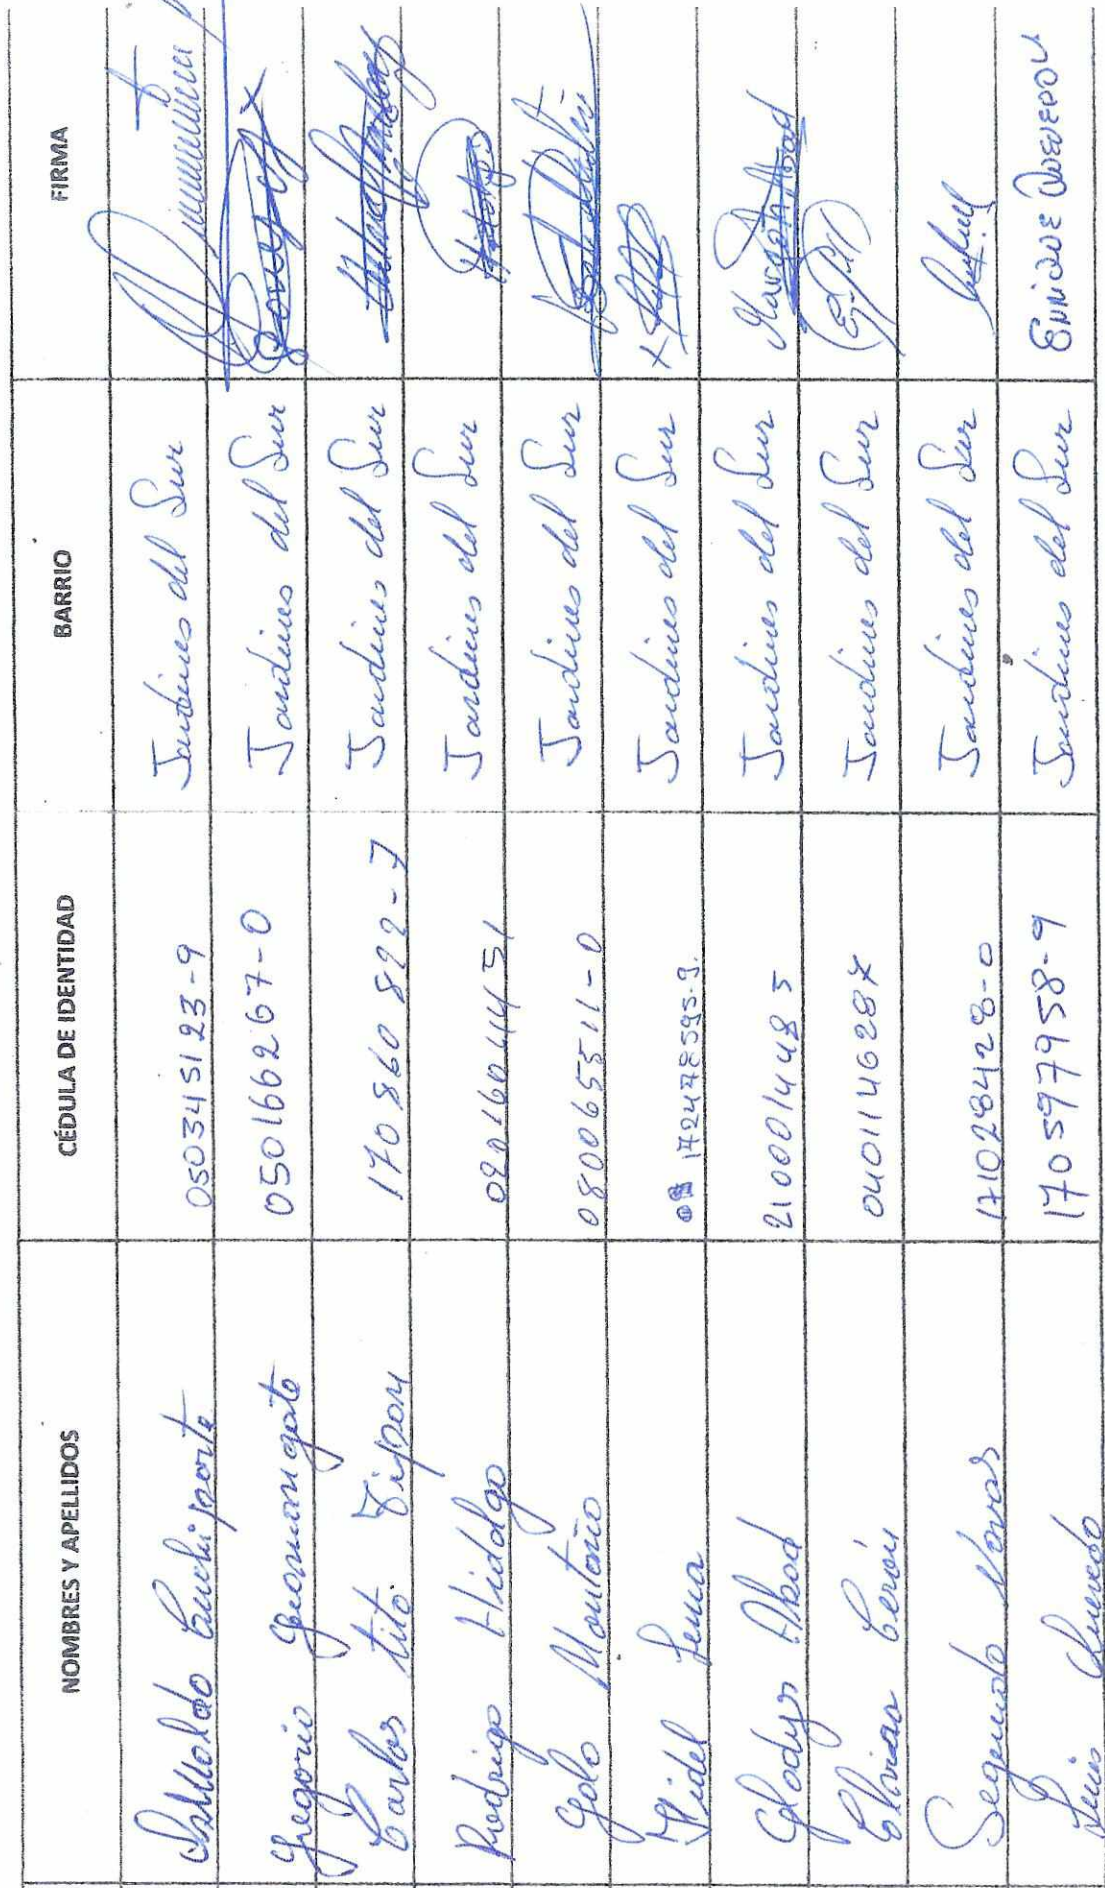 NOMBRES Y APELLIDOS CÉDULA DE IDENTIDAD BARRIO FIRMA
050345123-9 Jardines del Sur
Gregorio Guamangate 050166267-0 Jardines del Sur
Carlos Tito Tipan 170860822-7 Jardines del Sur
Rodrigo Hidalgo Jardines del Sur Hidalgo
Galo Montaño 080065511-0 Jardines del Sur
Fidel Lema 172478595-9. Jardines del Sur
Gladys Abad 2100014485 Jardines del Sur Abad
Cerón 0401146287 Jardines del Sur
Segundo Navas 171028428-0 Jardines del Sur
Luis Quevedo 170597958-9 Jardines del Sur